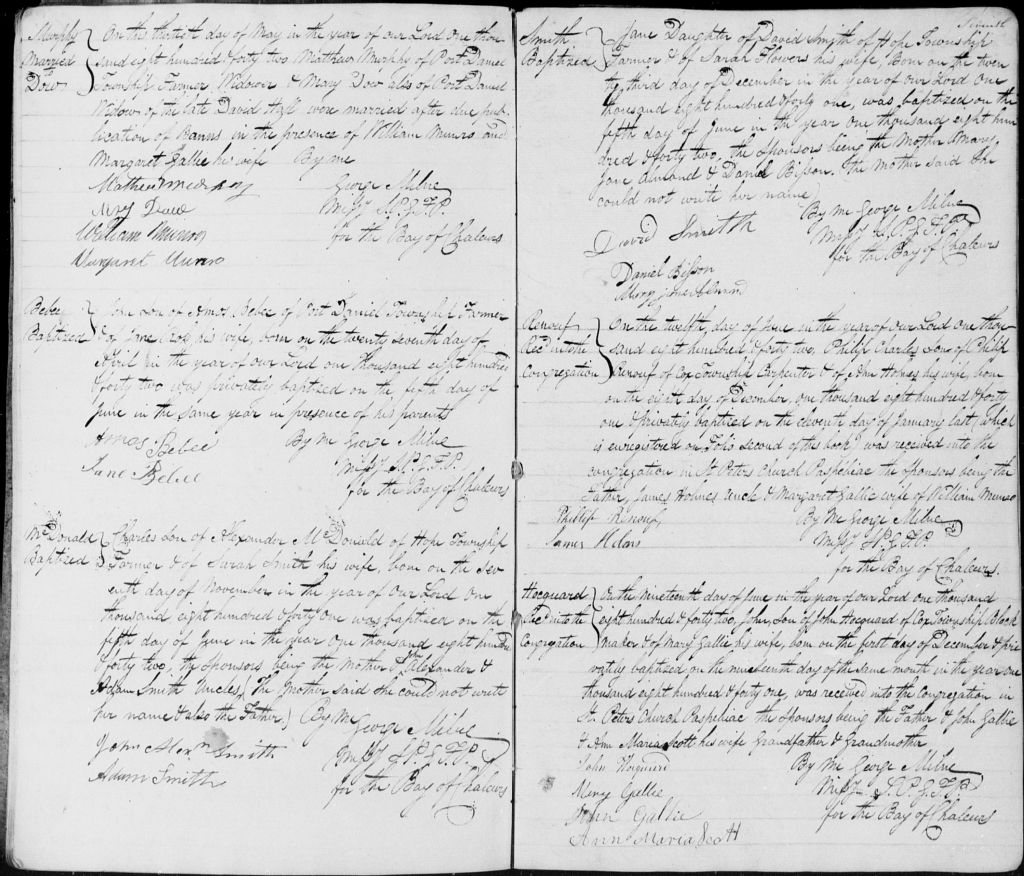 Murphy
Married
to
Dow
On this thirtieth day of May in the year of our Lord One thou
sand eight hundred & forty two Matthew Murphy of Port Daniel
Township Farmer Widower & Mary Dow also of Port Daniel
Widow of the late David were married after due pub
lication of Banns in the presence of William Munro and
Margaret Gallie his wife By me
George Milne
Missy S.P.G.F.P.
for the Bay of Chaleurs
William Munro
Margaret Munro
Bebee
Baptized
John Son of Amos Bebee of Port Daniel Township Farmer
& of Jane his wife, born on the twenty seventh day of
April in the year of our Lord one thousand eight hundred
& forty two was privately baptized on the fifth day of
June in the same year in presence of his parents
Amos Bebee
Jane Bebee
By Me George Milne
Missy S.P.G.F.P.
for the Bay of Chaleurs
McDonald
Baptized
Charles Son of Alexander McDonald of Hope Township
Farmer & of Sarah Smith his wife, born on the sev
enth day of November in the year of Our Lord One
thousand eight hundred & forty One was baptized on the
fifth day of June in the year One thousand eight hundred
& forty two, the Sponsors being the Mother Alexander &
Adam Smith Uncles, (The Mother said she could not write
her name & also the Father) By Me
George Milne
Missy S.P.G.F.P.
for the Bay of Chaleurs
John Alexn Smith
Adam Smith
Smith
Baptized
Jane Daughter of David Smith of Hope Township
Farmer & of Sarah Flowers his wife, Born on the twen
ty third day of December in the year of our Lord One
thousand eight hundred & forty one, was baptized on the
fifth day of June in the year One thousand eight hun
dred & forty two, the Sponsors being the Mother Mary
Jane & Daniel Bisson. The Mother said she
could not write her name
By Me George Milne
Missy S.P.G.F.P.
for the Bay of Chaleurs
David Smith
Daniel Bisson
Renouf
Rec into the
Congregation
On the twelfth day of June in the year of our Lord one thou
sand eight hundred & forty two, Philip Charles Son of Philip
Renouf of Cox Township Carpenter & of Ann Holmes his wife, born
on the eight day of December one thousand eight hundred & forty
one & privately baptized on the eleventh day of January last (which
is enregistered on Folio second of this book) was received into the
congregation in St Peters Church Paspebiac the Sponsors being the
Father, James Holmes Uncle & Margaret Gallie wife of William Munro
Phillip Renouf
James
By Me George Milne
Missy S.P.G.F.P.
for the Bay of Chaleurs.
Hocquard
Rec into the
Congregation
On the nineteenth day of June in the year of our Lord one thousand
eight hundred & forty two, John, Son of John Hocquard of Cox Township Block
maker & of Mary Gallie his wife, born on the first day of December & pri
vately baptized on the nineteenth day of the same month in the year one
thousand eight hundred & forty one, was received into the Congregation in
St Peters Church Paspebiac the Sponsors being the Father & John Gallie
& Ann Maria Scott his wife Grandfather & Grandmother
By Me George Milne
Missy S.P.G.F.P.
for the Bay of Chaleurs
John Hocquard
Mary Gallie
John Gallie
Ann Maria Scott